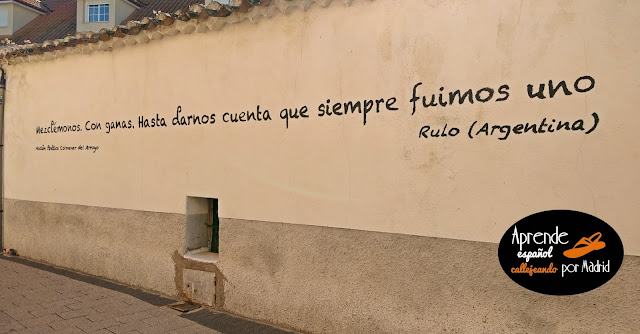 Mezclémonos. Con ganas. Hasta darnos cuenta que siempre fuimos uno
Rulo (Argentina)
Acción Poética Colmenar del Arroyo
Aprende
español
callejeando por Madrid